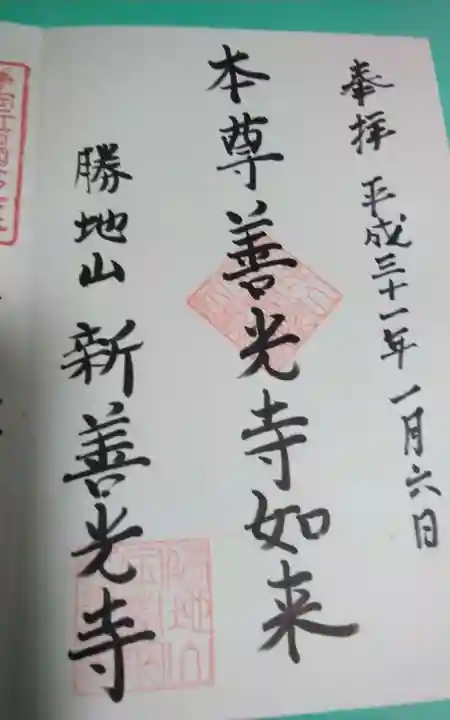 奉拝 平成三十一年一月六日
本尊善光寺如来
勝地山 新善光寺